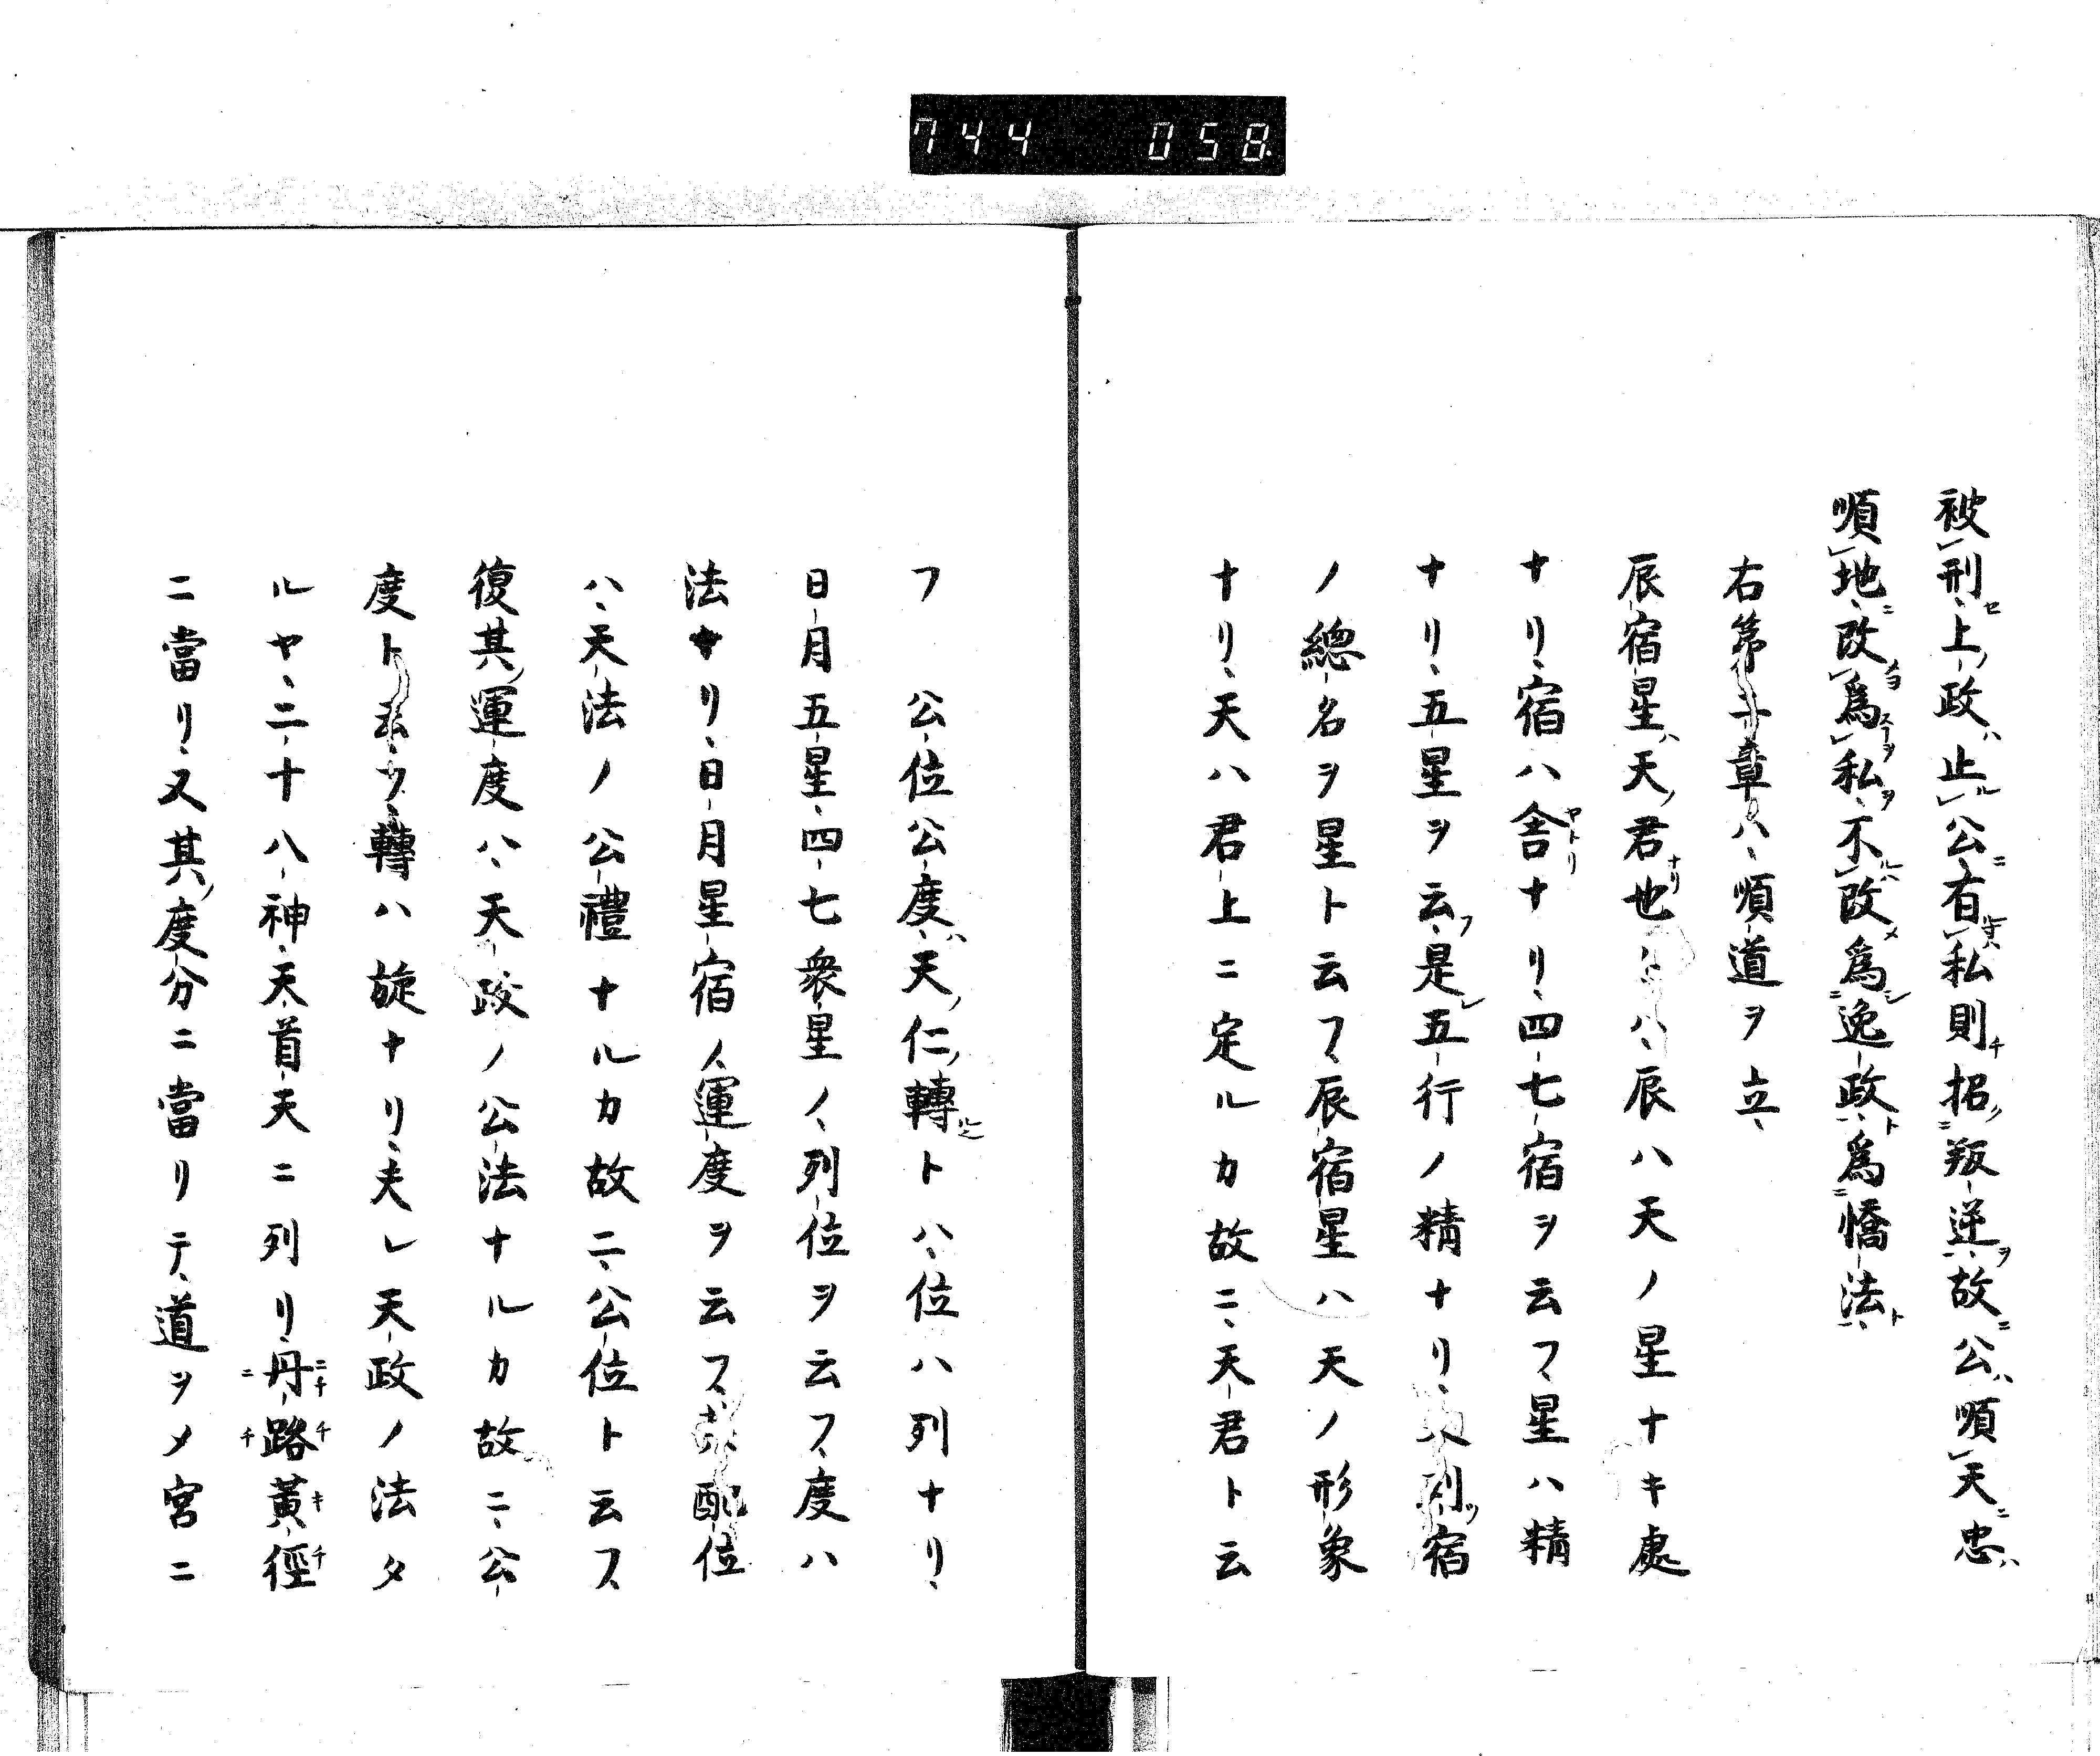 744 058
被刑上政止公有私則招叛逆故公順天忠
順地改爲私不改爲逸政爲憍法
右第十章ハ順道ヲ立
辰宿星天君也トハ辰ハ天ノ星ナキ處
ナリ宿ハ舎ナリ四七宿ヲ云フ星ハ精
ナリ五星ヲ云是五行ノ精ナリ列宿
ノ總名ヲ星ト云フ辰宿星ハ天ノ形象
ナリ天ハ君上ニ定ルカ故ニ天君ト云
フ 公位公度天仁轉トハ位ハ列ナリ
日月五星四七衆星ノ列位ヲ云フ度ハ
法ナリ日月星宿ノ運度ヲ云フ配位
ハ天法ノ公禮ナルカ故ニ公位ト云フ
復其運度ハ天政ノ公法ナルカ故ニ公
度ト云フ轉ハ旋ナリ夫レ天政ノ法タ
ルヤ二十八神天首天ニ列リ丹路黃徑
ニ當リ又其度分ニ當リテ道ヲメ宮ニ